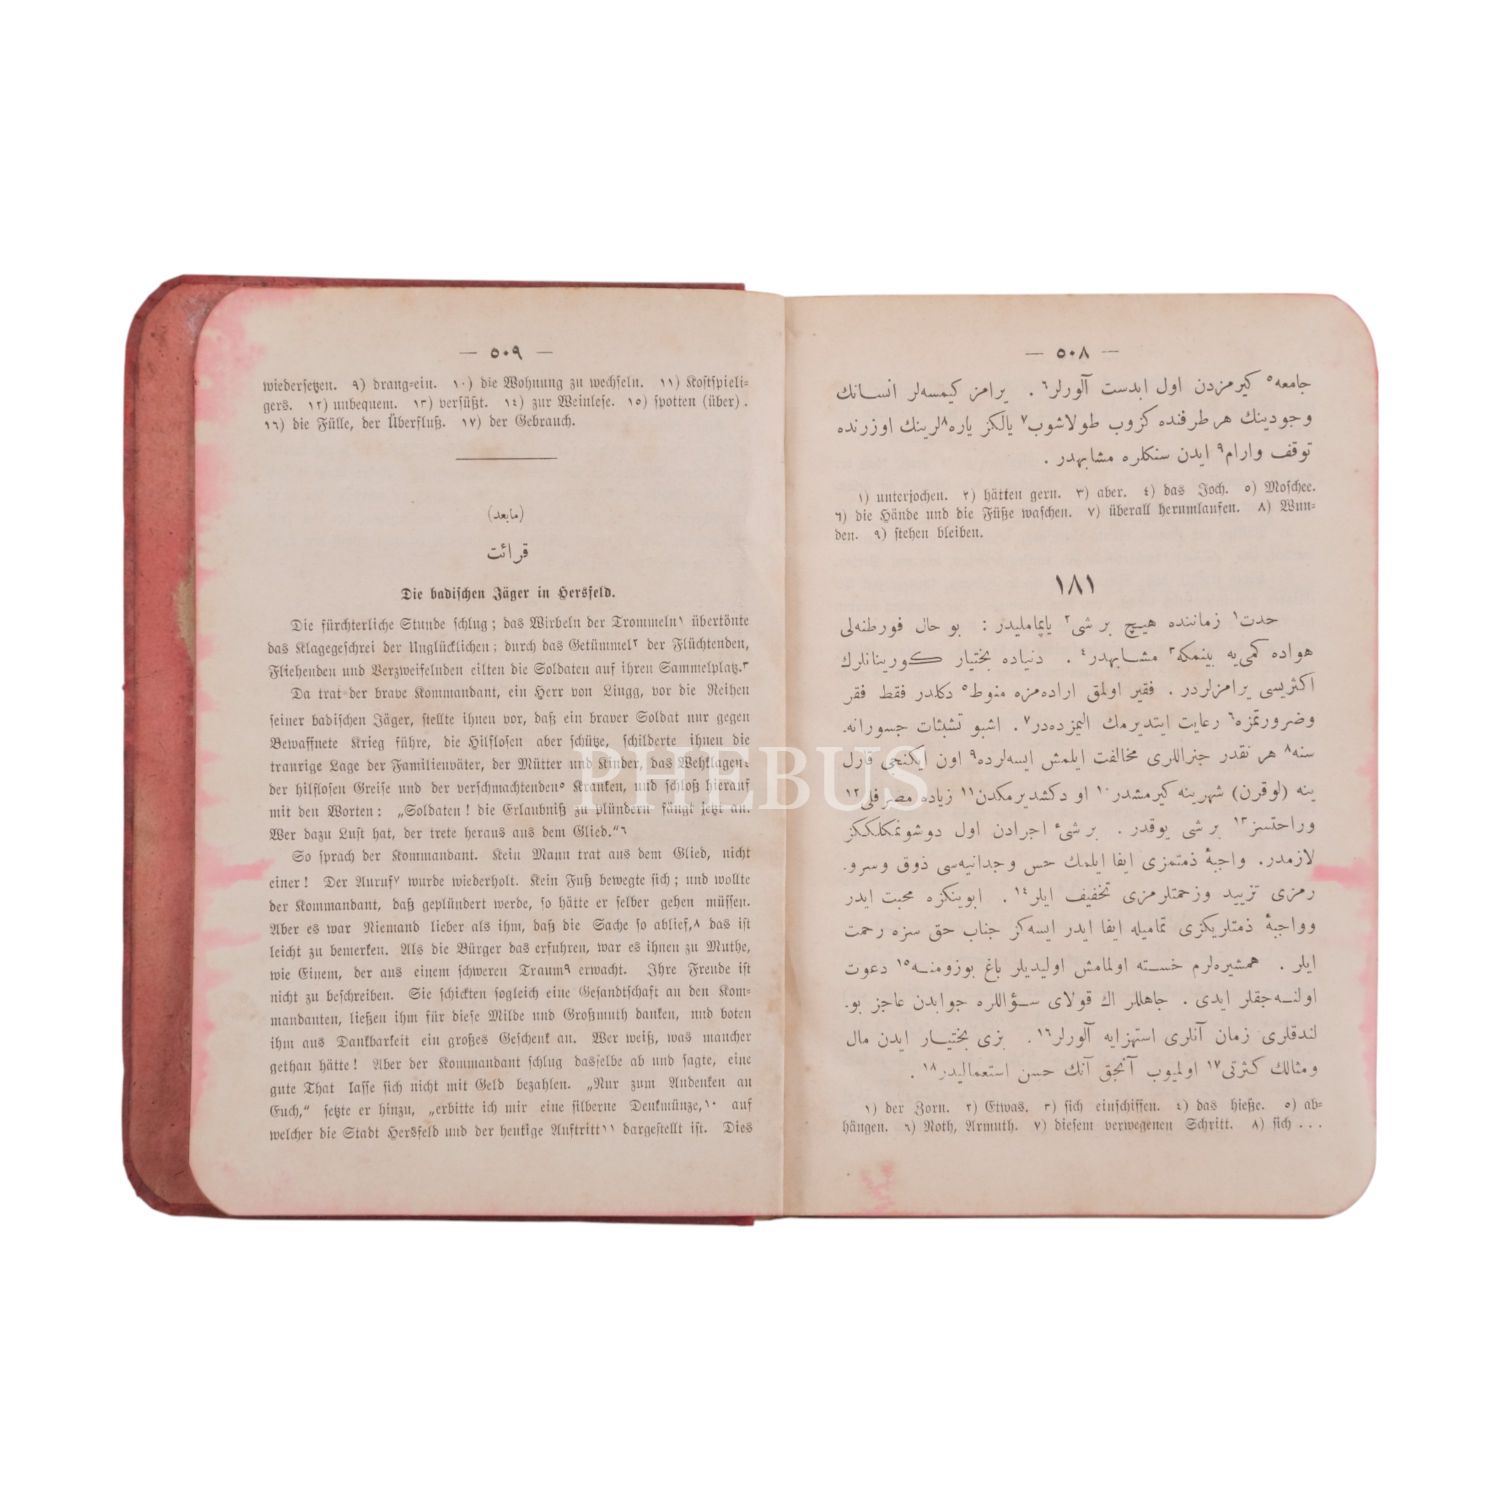 — ٥٠٨ —
جامعه⁵ كیرمزدن اول ابدست آلورلر⁶ . یرامز كیمسه‌لر انسانك
وجودینك هر طرفنده كزوب طولاشوب⁷ یالكز یاره⁸لرینك اوزرنده
توقف وارام⁹ ایدن سنكلره مشابهدر .
١) unterjochen. ٢) hätten gern. ٣) aber. ٤) das Joch. ٥) Moschee.
٦) die Hände und die Füße waschen. ٧) überall herumlaufen. ٨) Wun-
den. ٩) stehen bleiben.
١٨١
حدت¹ زماننده هیچ بر شی² یاپماملیدر : بو حال فورطنه‌لی
هواده كمی‌یه بینمكه³ مشابهدر⁴ . دنیاده بختیار كورینانلرك
اكثریسی یرامزلردر . فقیر اولمق اراده‌مزه منوط⁵ دكلدر فقط فقر
وضرورتمزه⁶ رعایت ایتدیرمك الیمزده‌در⁷ . اشبو تشبثات جسورانه‌
سنه⁸ هر نقدر جنراللری مخالفت ایلمش ایسه‌لرده⁹ اون ایكنجی قارل
ینه (لوقرن) شهرینه كیرمشدر¹⁰ او دكشدیرمكدن¹¹ زیاده مصرفلی¹²
وراحتسز¹³ بر شی یوقدر . بر شئ اجرادن اول دوشونمكلككز
لازمدر. واجبهٔ ذمتمزی ایفا ایلمك حس وجدانیه‌سی ذوق وسرو.
رمزی تزیید وزحمتلرمزی تخفیف ایلر¹⁴ . ابوینكزه محبت ایدر
وواجبهٔ ذمتلریكزی تمامیله ایفا ایدر ایسه‌كز جناب حق سزه رحمت
ایلر . همشیره‌لرم خسته اولمامش اولیدیلر باغ بوزومنه¹⁵ دعوت
اولنه‌جقلر ایدی . جاهللر اك قولای سؤاللره جوابدن عاجز بو.
لندقلری زمان آنلری استهزایه آلورلر¹⁶ . بزی بختیار ایدن مال
ومنالك كثرتی¹⁷ اولمیوب آنجق آنك حسن استعمالیدر¹⁸ .
١) der Zorn. ٢) Etwas. ٣) sich einschiffen. ٤) das hieße. ٥) ab-
hängen. ٦) Noth, Armuth. ٧) diesem verwegenen Schritt. ٨) sich ...
— ٥٠٩ —
wiedersetzen. ٩) drang-ein. ١٠) die Wohnung zu wechseln. ١١) Kostspieli-
gers. ١٢) unbequem. ١٣) versüßt. ١٤) zur Weinlese. ١٥) spotten (über).
١٦) die Fülle, der Überfluß. ١٧) der Gebrauch.
(مابعد)
قرائت
Die badischen Jäger in Hersfeld.
Die fürchterliche Stunde schlug; das Wirbeln der Trommeln¹ übertönte
das Klagegeschrei der Unglücklichen; durch das Getümmel² der Flüchtenden,
Fliehenden und Verzweifelnden eilten die Soldaten auf ihren Sammelplatz.³
Da trat der brave Kommandant, ein Herr von Lingg, vor die Reihen
seiner badischen Jäger, stellte ihnen vor, daß ein braver Soldat nur gegen
Bewaffnete Krieg führe, die Hilflosen aber schütze, schilderte ihnen die
traurige Lage der Familienväter, der Mütter und Kinder, das Wehklagen⁴
der hilflosen Greise und der verschmachtenden⁵ Kranken, und schloß hierauf
mit den Worten: „Soldaten! die Erlaubniß zu plündern fängt jetzt an.
Wer dazu Lust hat, der trete heraus aus dem Glied.“⁶
So sprach der Kommandant. Kein Mann trat aus dem Glied, nicht
einer! Der Aufruf⁷ wurde wiederholt. Kein Fuß bewegte sich; und wollte
der Kommandant, daß geplündert werde, so hätte er selber gehen müssen.
Aber es war Niemand lieber als ihm, daß die Sache so ablief,⁸ das ist
leicht zu bemerken. Als die Bürger das erfuhren, war es ihnen zu Muthe,
wie Einem, der aus einem schweren Traum⁹ erwacht. Ihre Freude ist
nicht zu beschreiben. Sie schickten sogleich eine Gesandtschaft an den Kom-
mandanten, ließen ihm für diese Milde und Großmuth danken, und boten
ihm aus Dankbarkeit ein großes Geschenk an. Wer weiß, was mancher
gethan hätte! Aber der Kommandant schlug dasselbe ab und sagte, eine
gute That lasse sich nicht mit Geld bezahlen. „Nur zum Andenken an
Euch,“ setzte er hinzu, „erbitte ich mir eine silberne Denkmünze,¹⁰ auf
welcher die Stadt Hersfeld und der heutige Auftritt¹¹ dargestellt ist. Dies
PHEBUS